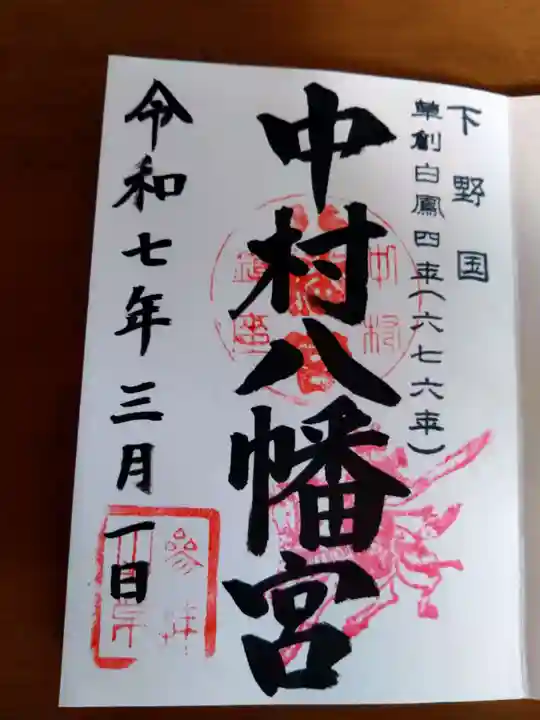 下野国
草創白鳳四年(六七六年)
中村八幡宮
令和七年三月一日